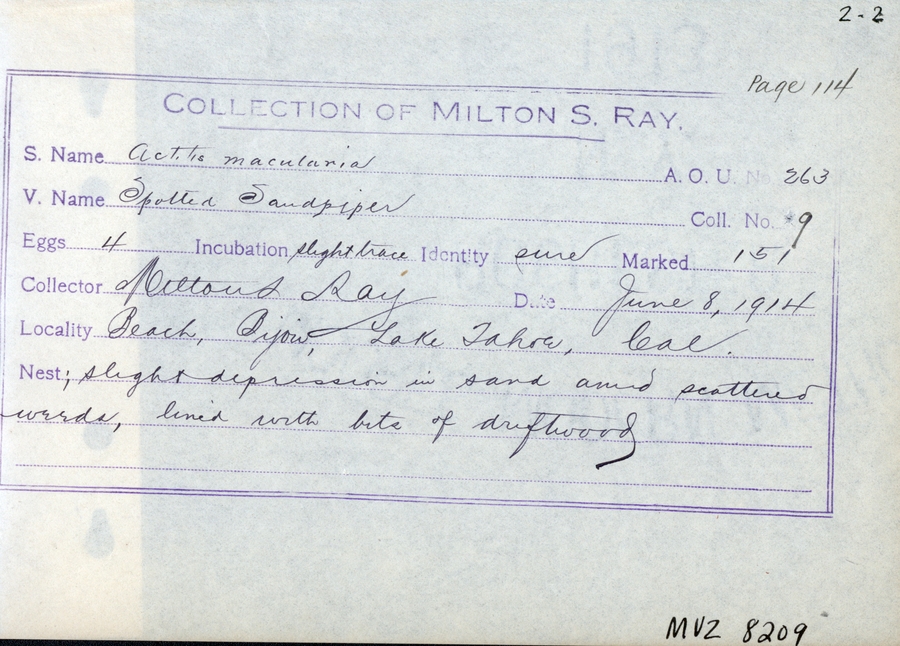 2-2
Page 114
COLLECTION OF MILTON S. RAY.
S. Name Actitis macularia A. O. U. No. 263
V. Name Spotted Sandpiper Coll. No. 9
Eggs 4 Incubation slight trace Identity sure Marked 151
Collector Milton S Ray Date June 8, 1914
Locality Beach, Bijou, Lake Tahoe, Cal.
Nest; slight depression in sand amid scattered
weeds, lined with bits of driftwood
MVZ 8209